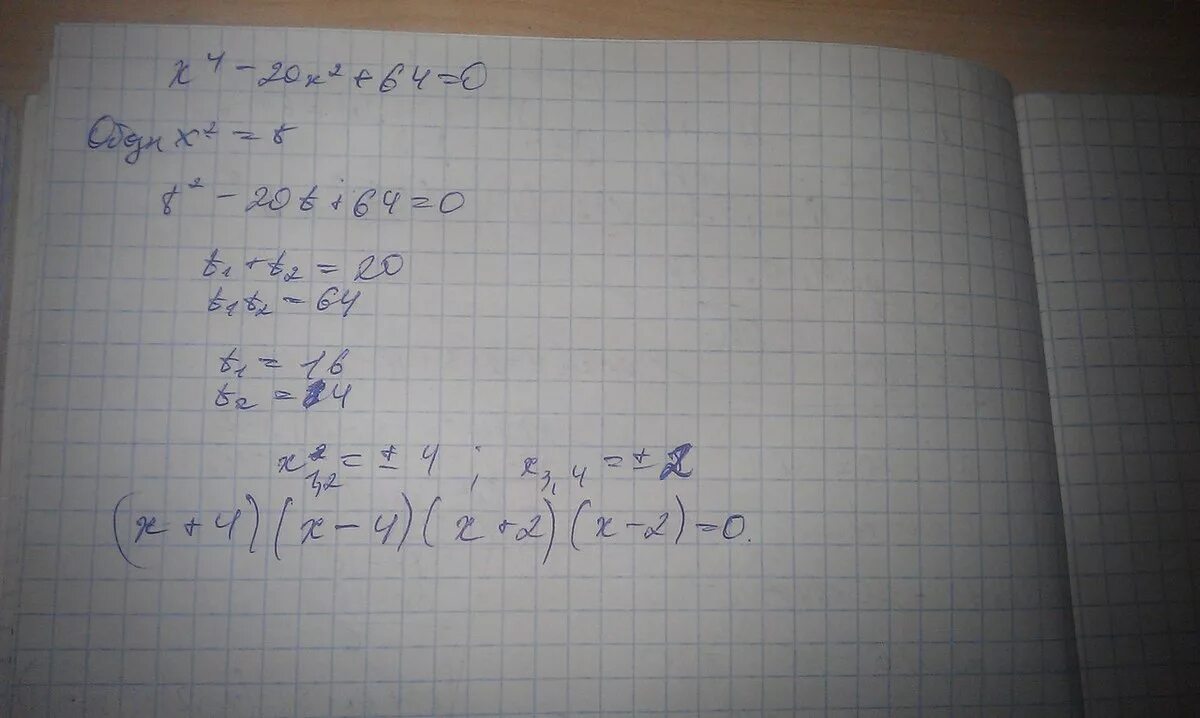 x⁴ - 20x² + 64 = 0
Обозн x² = t
t² - 20t + 64 = 0
t₁ + t₂ = 20
t₁t₂ = 64
t₁ = 16
t₂ = 4
x₁,₂ = ± 4 ; x₃,₄ = ± 2
(x + 4)(x - 4)(x + 2)(x - 2) = 0.